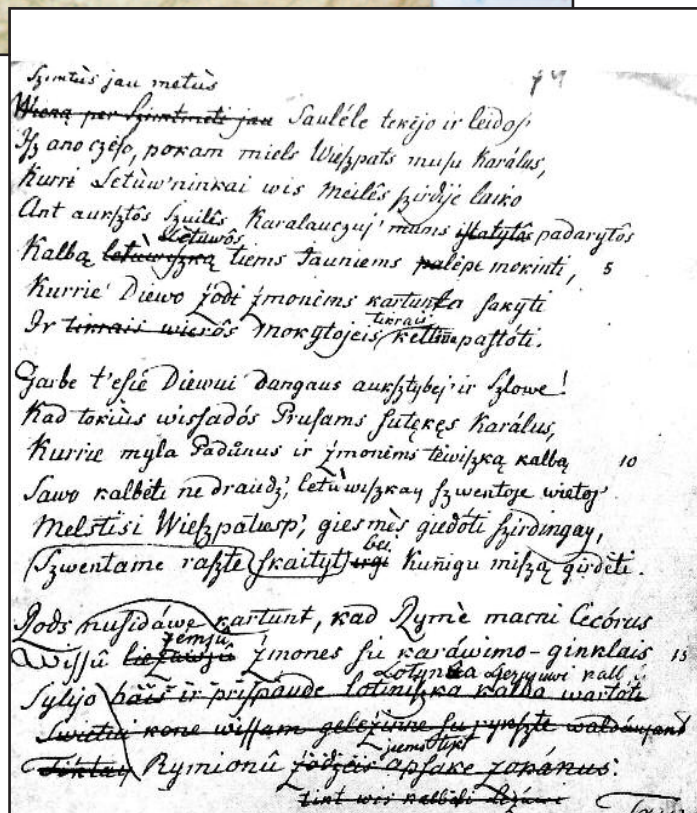 Szimtùs jau metùs 74
Wieną per Szimtmeti jau Saulėle tekėjo ir leidos'
Isz ano czėso, pokam miels Wieszpats musu Karálus,
Kurri Letùw'ninkai wis meilės szirdije laiko
Ant auksztôs Szuilês Karalauczuj' mums istatytôs padarytôs
Letuwôs
Kalbą letùwiszką tiems Jauniems palėpe mokinti, 5
Kurrie Diewo żodi żmonėms kartunta sakyti
tikrais
Ir tikrais wierôs mokytojeis kettine pastóti.
Garbe t'esie Diewui Dangaus auksztybej' ir Szlowe!
Kad tokiùs wissadós Prusams sutękęs Karálus,
Kurrie myla Padůnus ir żmonėms tėwiszką kalbą 10
Sawo kalbėti ne draudż', letùwiszkay szwentoje wietoj'
Melstisi Wieszpatiesp', giesmės giedóti szirdingay,
bei
Szwentame raszte skaityt' irgi Kuñigu miszą girdėti.
Rods nusidáwę kartunt, kad Rymė macni Cecórus
żemjû
Wissû liežuwjû żmones su karáwimo-ginklais 15
Lotynka
Sylijo bais ir prispaude lotiniszka kalba wartóti
Swietui kone wissam geležinne su rykszte waldáujant
jiems tikt
Tiktay Rymionû żôdżeis apsake zokánus.
tikt wis kalbėsi